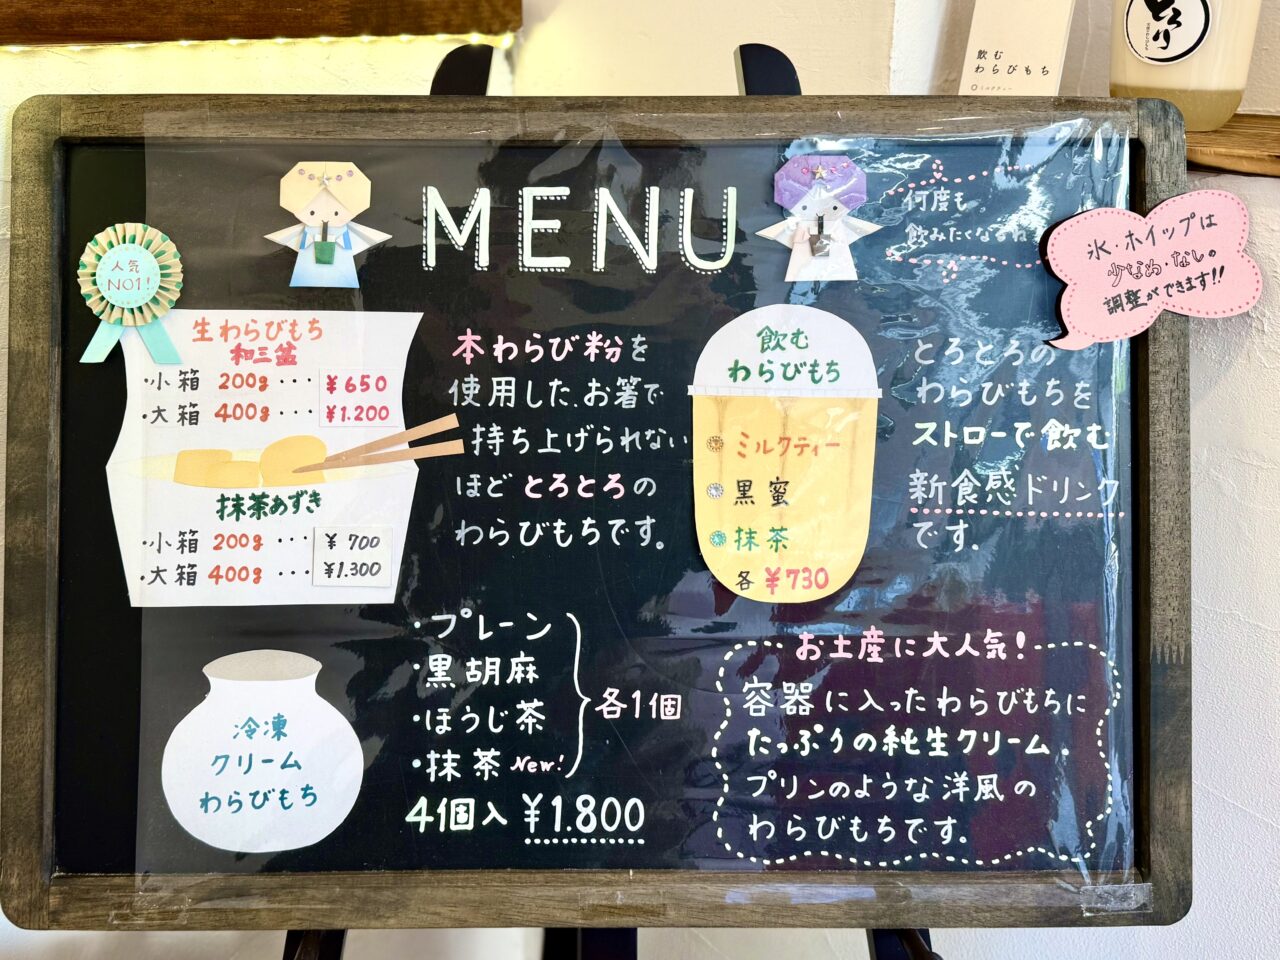 とろり
飲む
わらびもち
ミルクティー
MENU
何度も
飲みたくなるね
氷・ホイップは
少なめ・なしの
調整ができます!!
人気
NO1!
生わらびもち
和三盆
・小箱 200g・・・ ¥650
・大箱 400g・・・ ¥1.200
抹茶あずき
・小箱 200g・・・ ¥700
・大箱 400g・・・ ¥1.300
本わらび粉を
使用した、お箸で
持ち上げられない
ほどとろとろの
わらびもちです。
飲む
わらびもち
ミルクティー
黒蜜
抹茶
各¥730
とろとろの
わらびもちを
ストローで飲む
新食感ドリンク
です。
冷凍
クリーム
わらびもち
・プレーン
・黒胡麻
・ほうじ茶
・抹茶 New!
各1個
4個入 ¥1.800
お土産に大人気!
容器に入ったわらびもちに
たっぷりの純生クリーム。
プリンのような洋風の
わらびもちです。